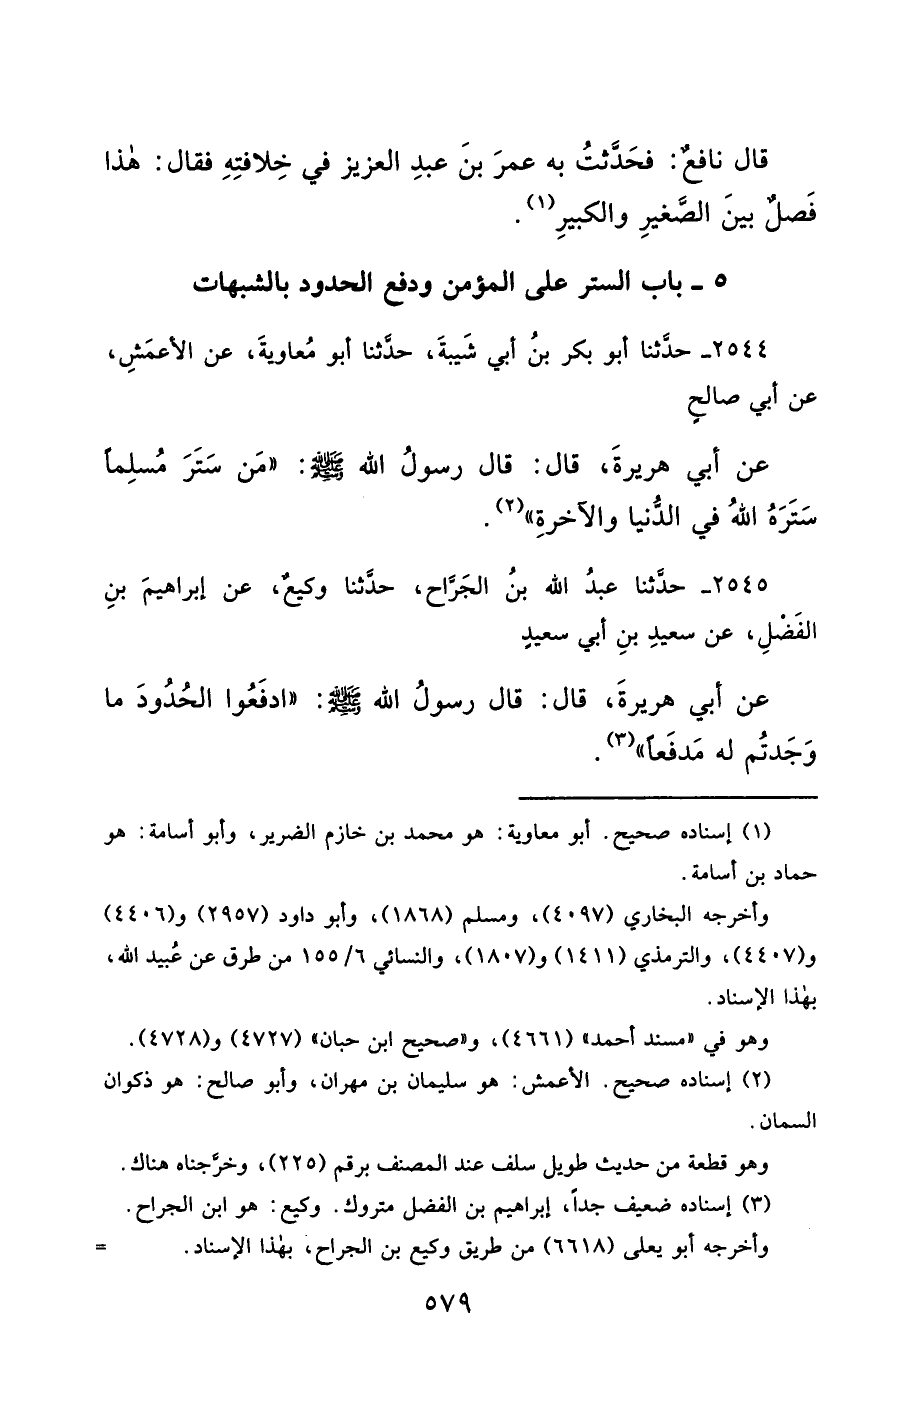 قال نافعٌ: فحَدَّثتُ به عمرَ بنَ عبدِ العزيز في خِلافتِهِ فقال: هٰذا
فَصلٌ بينَ الصَّغيرِ والكبيرِ(١).
٥ ـ باب الستر على المؤمن ودفع الحدود بالشبهات
٢٥٤٤ـ حدَّثنا أبو بكر بنُ أبي شَيبةَ، حدَّثنا أبو مُعاويةَ، عن الأعمَشِ،
عن أبي صالحٍ
عن أبي هريرةَ، قال: قال رسولُ الله ﷺ: «مَن ستَرَ مُسلِماً
سَتَرَهُ اللهُ في الدُّنيا والآخرةِ»(٢).
٢٥٤٥ـ حدَّثنا عبدُ الله بنُ الجَرَّاح، حدَّثنا وكيعٌ، عن إبراهيمَ بنِ
الفَضْلِ، عن سعيدِ بنِ أبي سعيدٍ
عن أبي هريرةَ، قال: قال رسولُ الله ﷺ: «ادفَعُوا الحُدُودَ ما
وَجَدتُم له مَدفَعاً»(٣).
(١) إسناده صحيح. أبو معاوية: هو محمد بن خازم الضرير، وأبو أسامة: هو
حماد بن أسامة.
وأخرجه البخاري (٤٠٩٧)، ومسلم (١٨٦٨)، وأبو داود (٢٩٥٧) و(٤٤٠٦)
و(٤٤٠٧)، والترمذي (١٤١١) و(١٨٠٧)، والنسائي ٦/ ١٥٥ من طرق عن عُبيد الله،
بهٰذا الإسناد.
وهو في «مسند أحمد» (٤٦٦١)، و«صحيح ابن حبان» (٤٧٢٧) و(٤٧٢٨).
(٢) إسناده صحيح. الأعمش: هو سليمان بن مهران، وأبو صالح: هو ذكوان
السمان.
وهو قطعة من حديث طويل سلف عند المصنف برقم (٢٢٥)، وخرَّجناه هناك.
(٣) إسناده ضعيف جداً، إبراهيم بن الفضل متروك. وكيع: هو ابن الجراح.
وأخرجه أبو يعلى (٦٦١٨) من طريق وكيع بن الجراح، بهٰذا الإسناد. =
٥٧٩